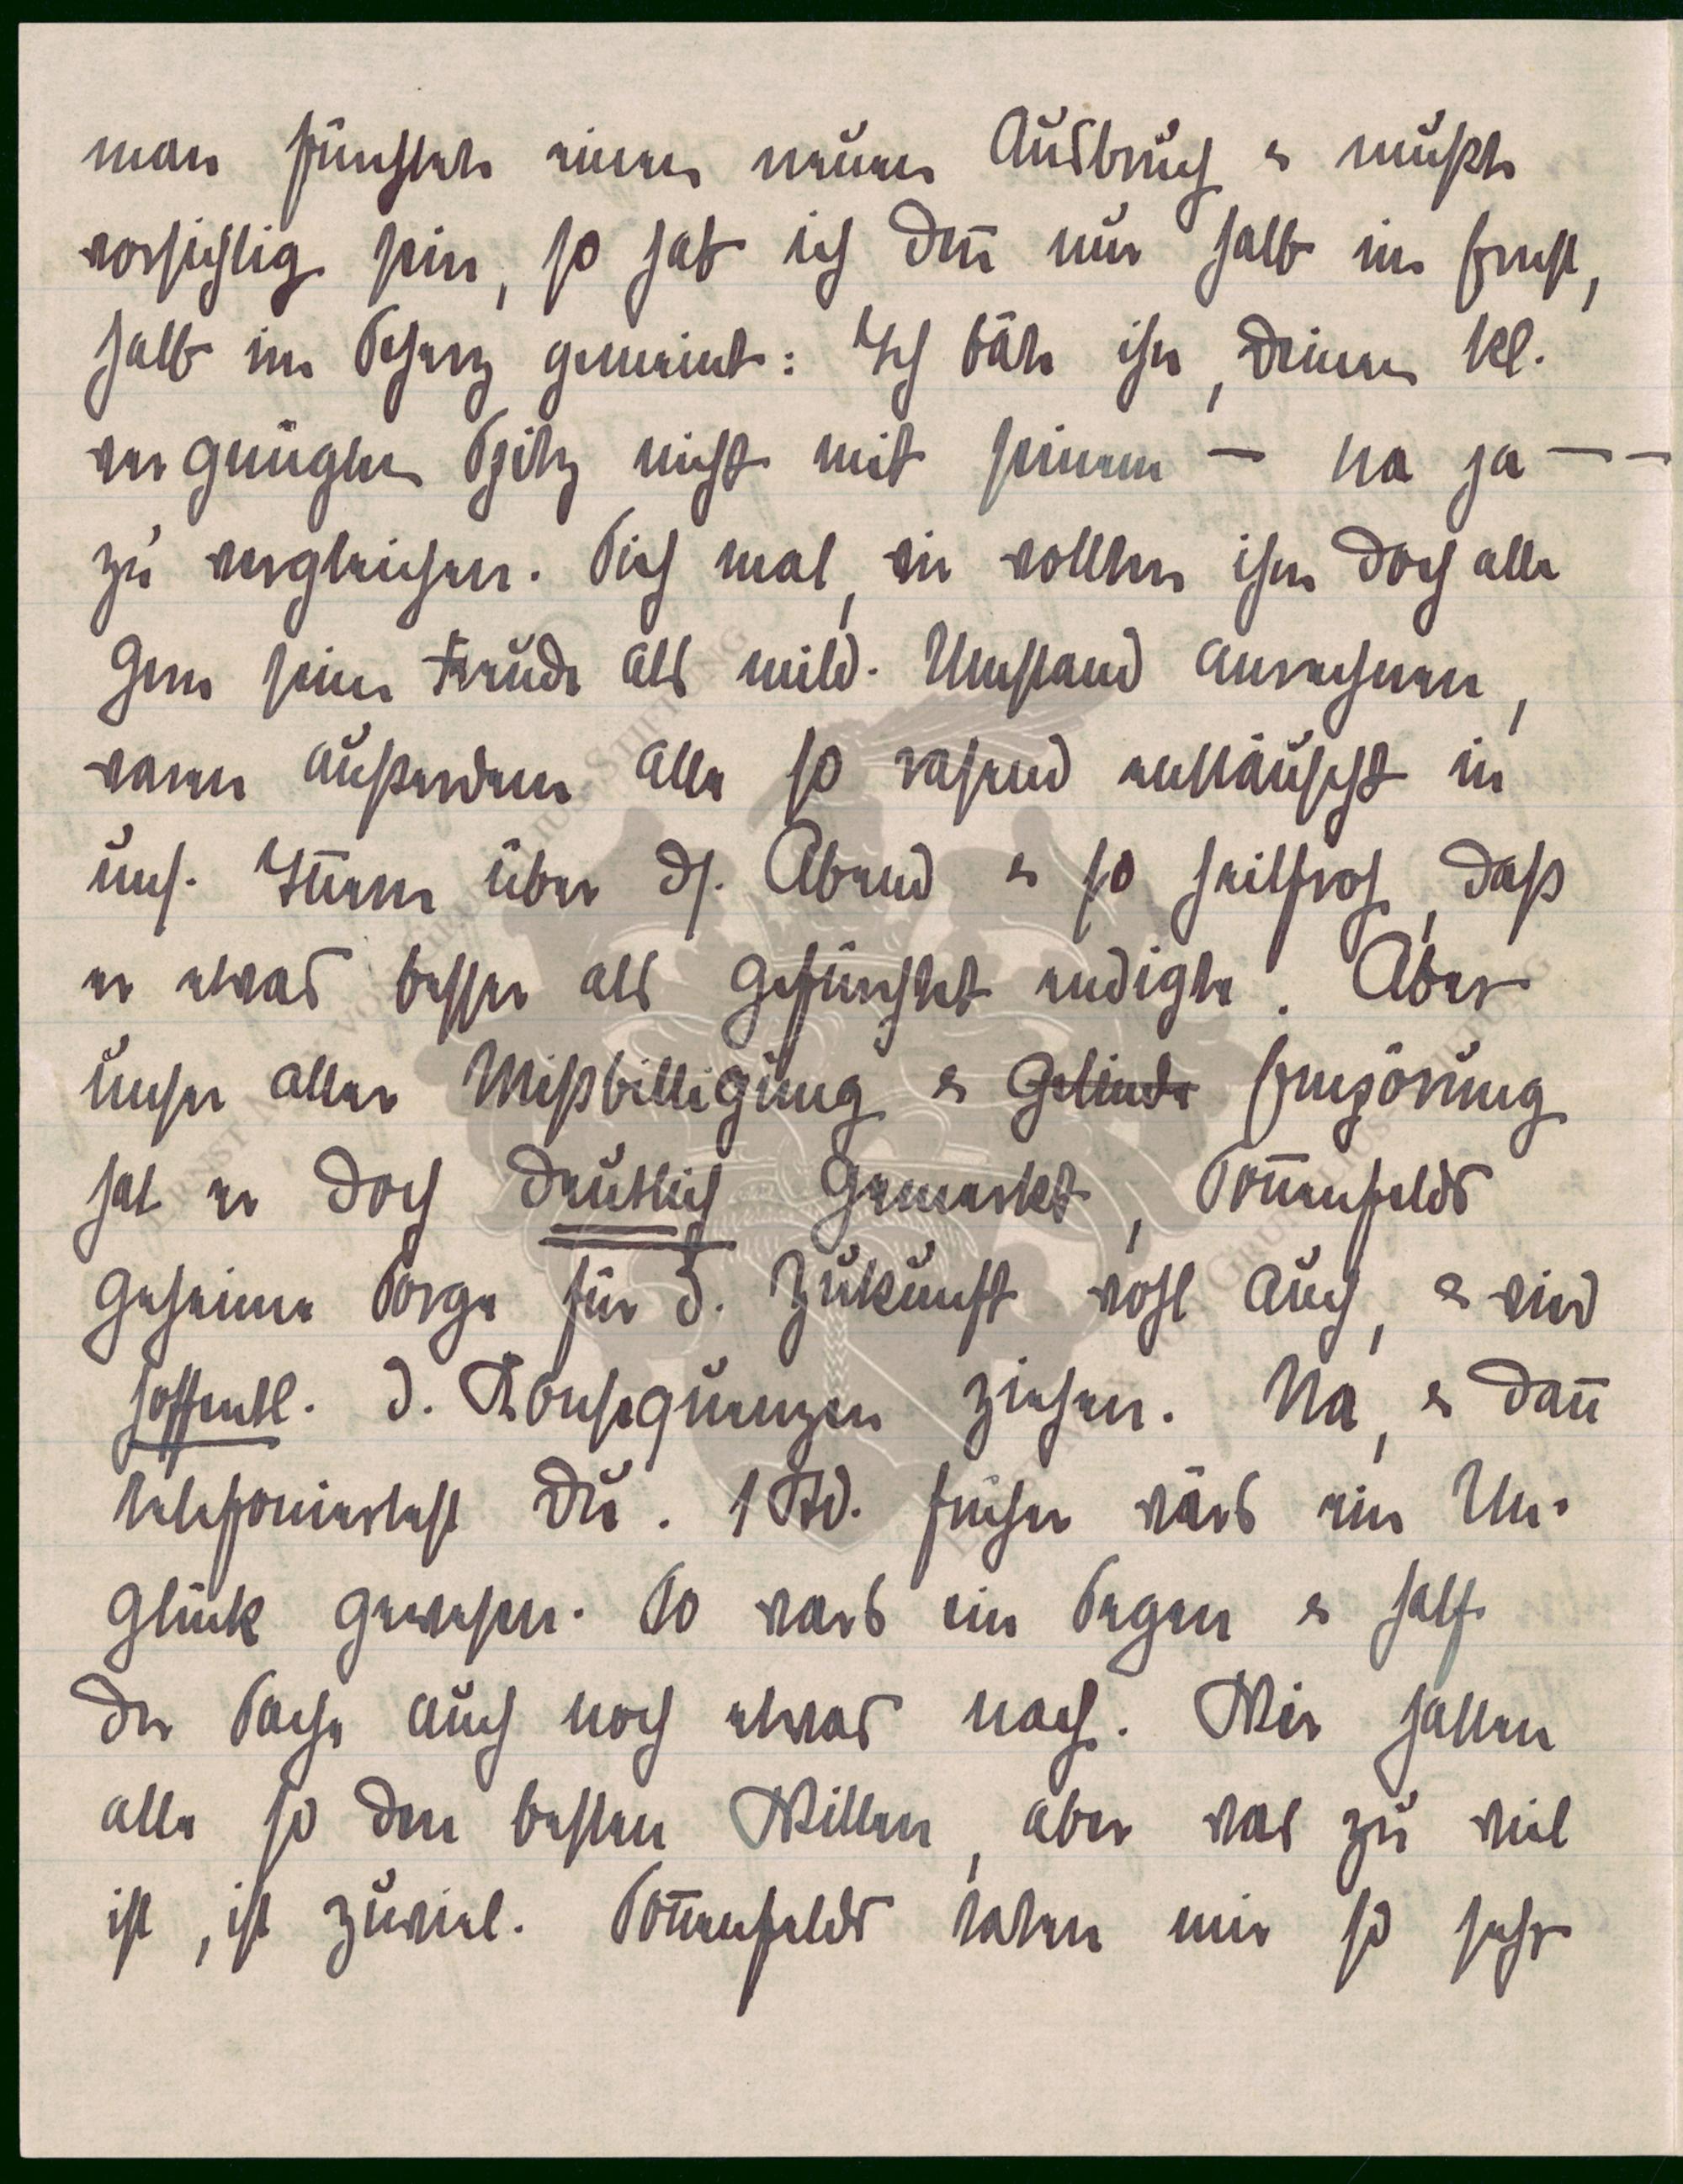 man fürchtete einen neuen Ausbruch & mußte
vorsichtig sein, so hab ich den̅ nur halb im Ernst,
halb im Scherz gemeint: Ich bäte ihn, deinen kl.
vergnügten Spitz nicht mit seinem — na ja — —
zu vergleichen. Sieh mal, wir wollten ihm doch alle
gern seine Freude als mild. Umstand anrechnen,
waren außerdem alle so rasend enttäuscht in
uns. Innern über ds. Abend & so heilfroh, daß
er etwas besser als gefürchtet endigte. Aber
unser aller Mißbilligung & gelinde Empörung
hat er doch deutlich gemerkt, Son̅enfelds
geheime Sorge für d. Zukunft wohl auch, & wird
hoffentl. d. Konsequenzen ziehen. Na, & dan̅
telefoniertest Du. 1 Std. früher wärs ein Un-
glück gewesen. So wars ein Segen & half
der Sache auch noch etwas nach. Wir hatten
alle so den besten Willen, aber was zu viel
ist, ist zuviel. Son̅enfelds taten mir so sehr